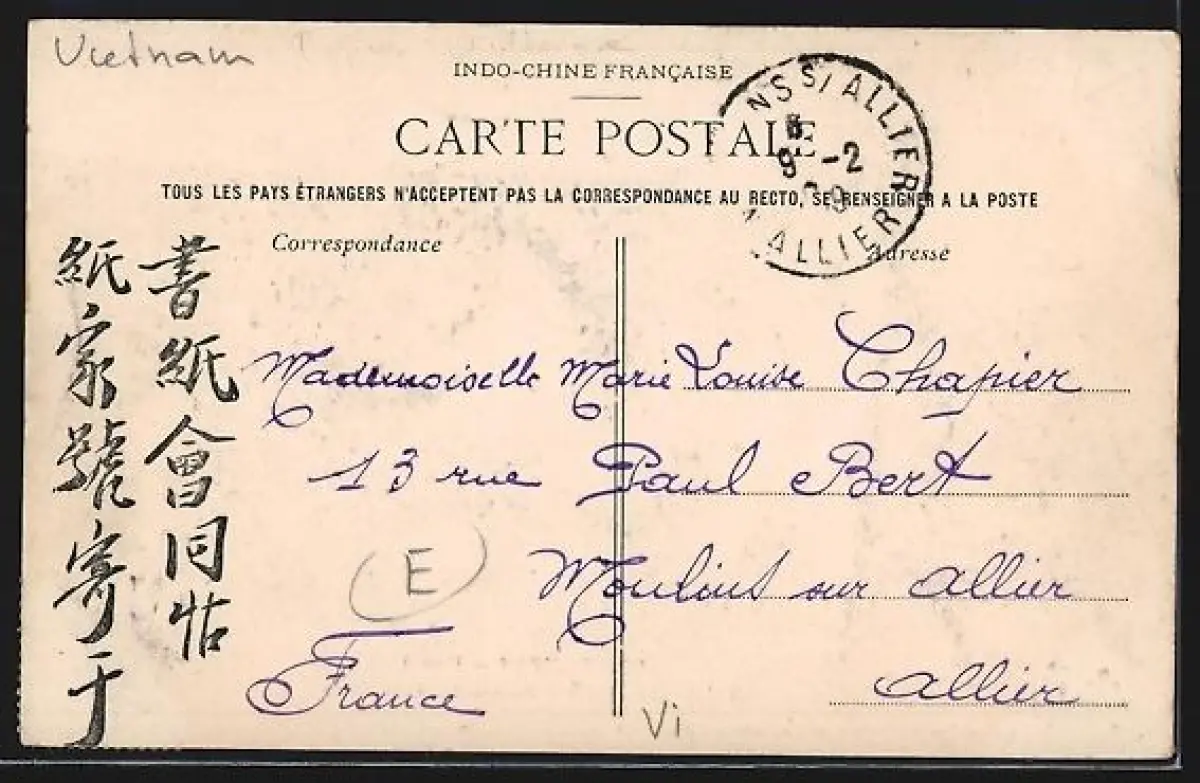 Vietnam
INDO-CHINE FRANÇAISE
CARTE POSTALE
TOUS LES PAYS ÉTRANGERS N'ACCEPTENT PAS LA CORRESPONDANCE AU RECTO, SE RENSEIGNER A LA POSTE
NS S/ ALLIER
9 -2
ALLIER
Correspondance
Adresse
書紙會同帖
紙家號寄于
Mademoiselle Marie Louise Chapier
13 rue Paul Bert
Moulins sur Allier
Allier
France
E
Vi